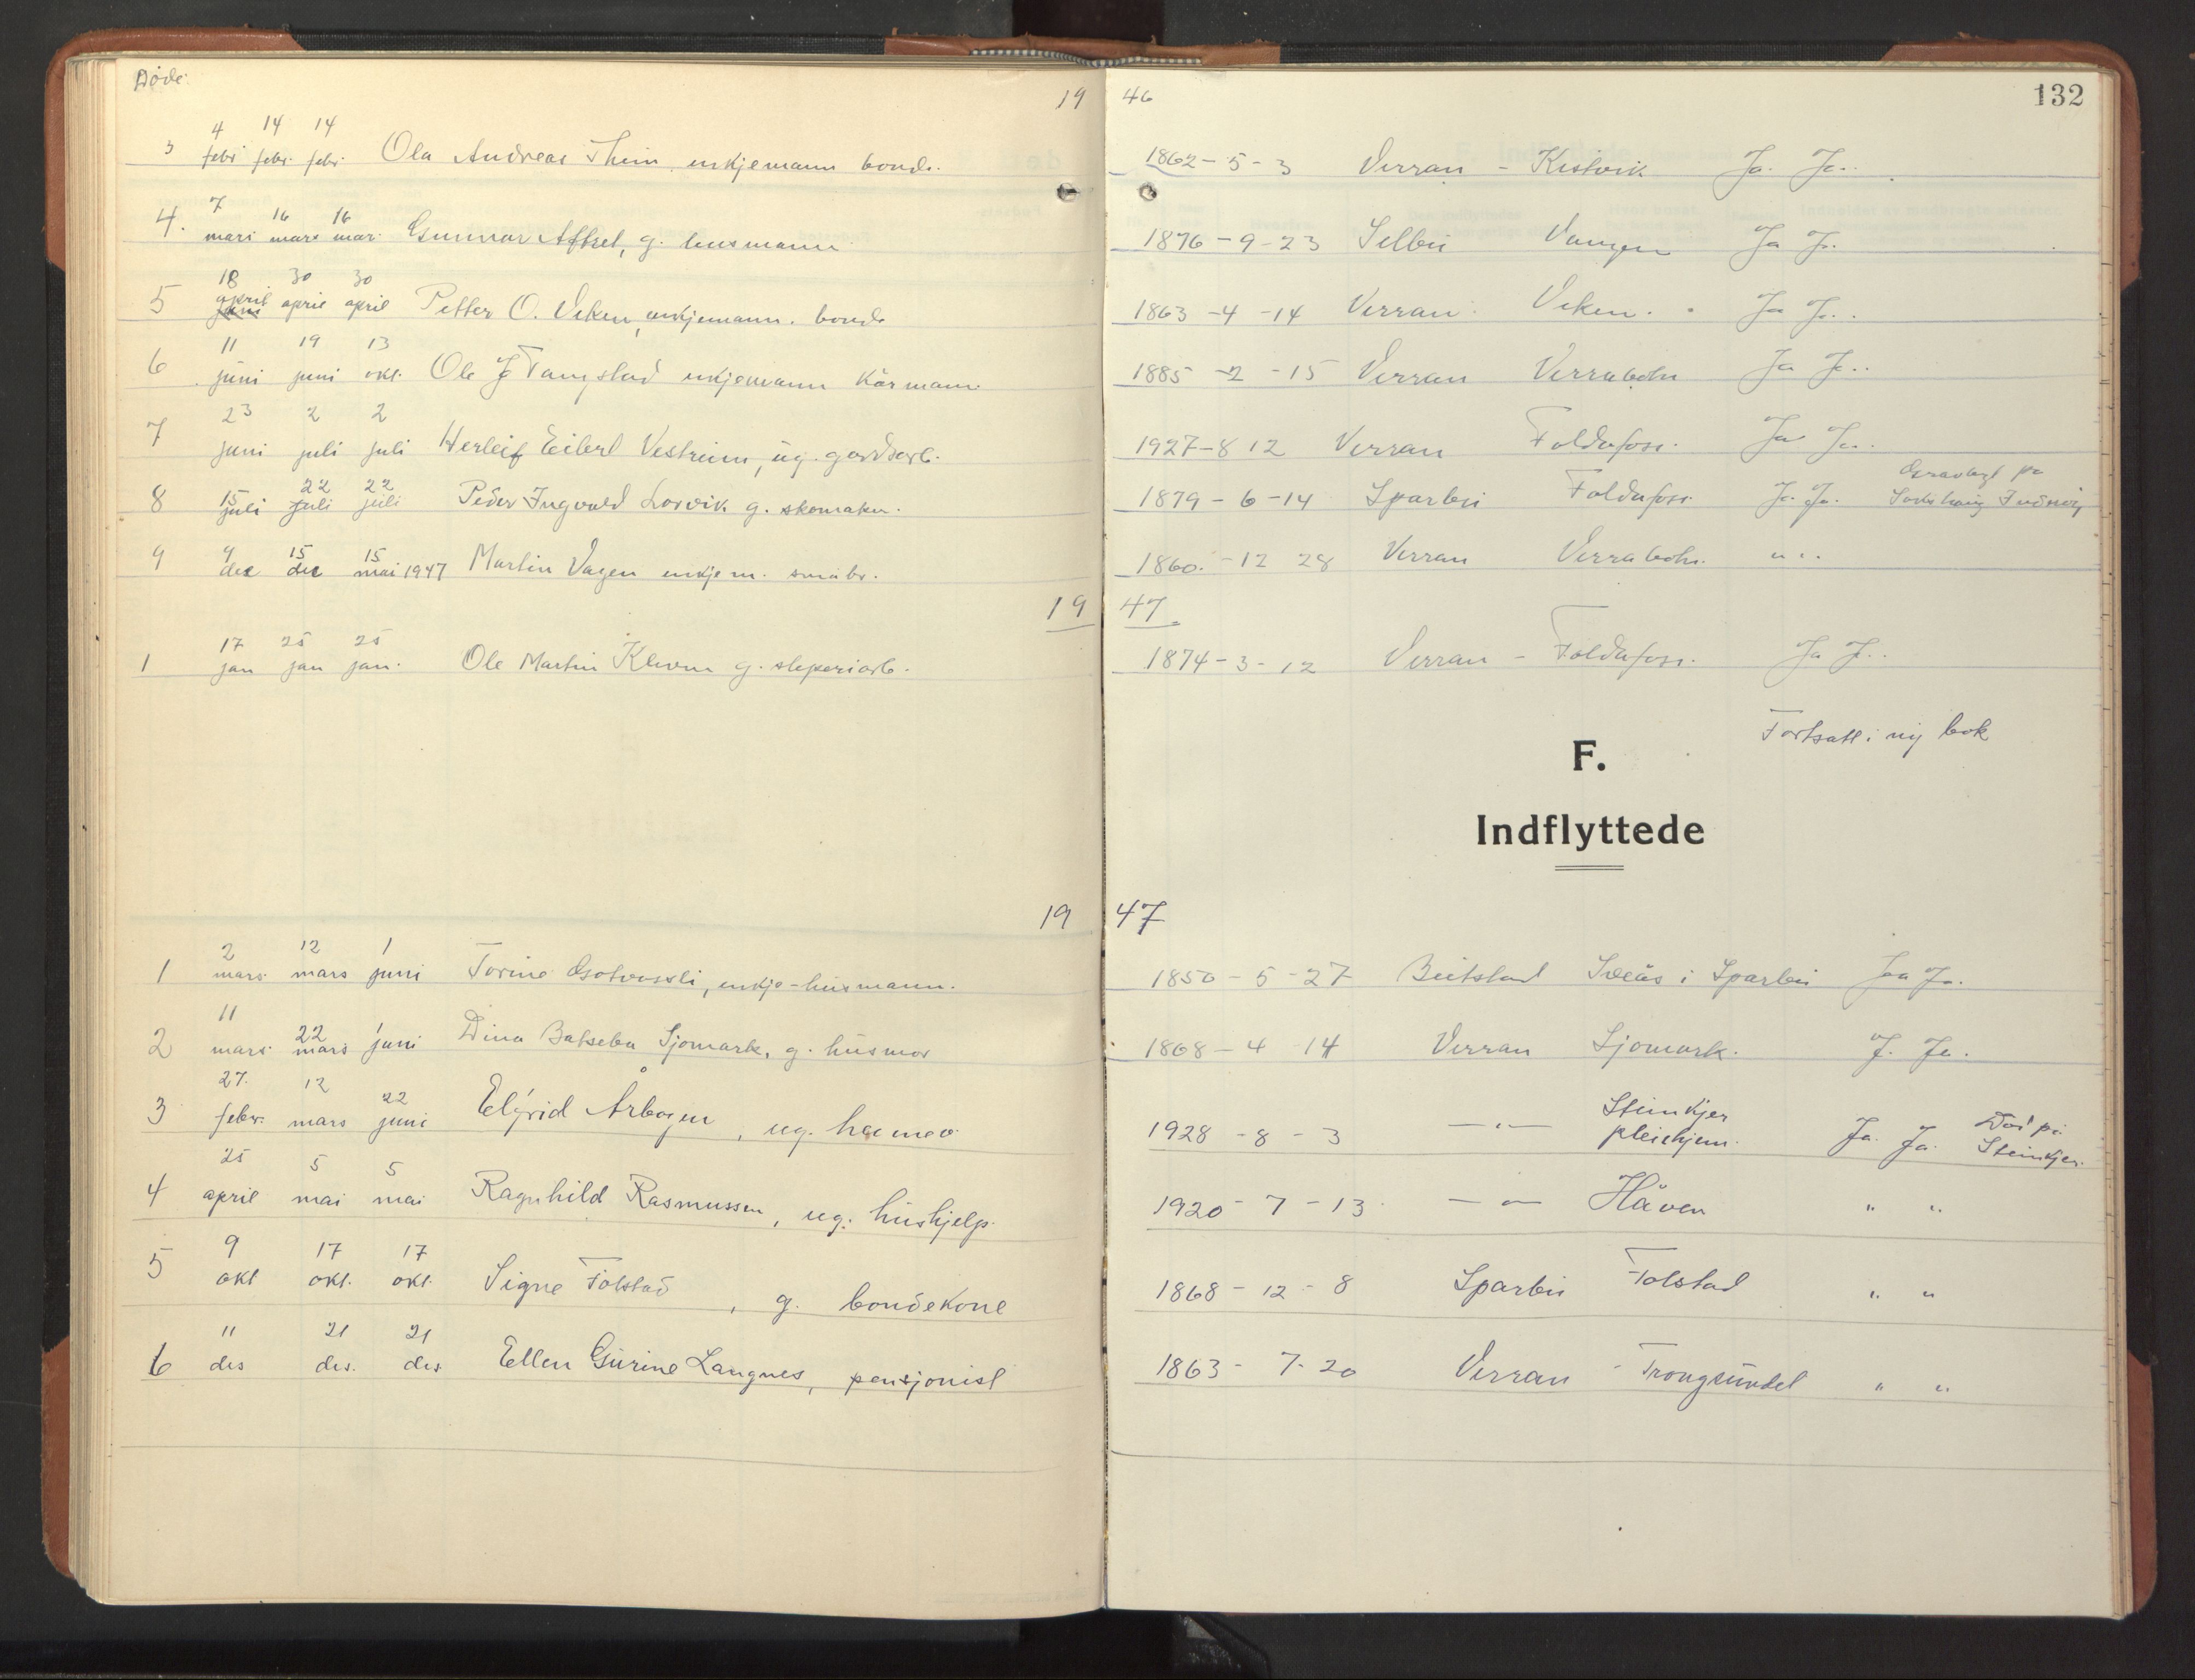 Døde.
19 46
132
3 4 febr 14 febr. 14 febr. Ola Andreas Thun, enkjemann bonde. 1862-5-3 Verran - Kistvik Ja. Ja.
4. 7 mars 16 mars 16 mar. Gunnar Aftret, g. husmann 1876-9-23 Selbu Vangen Ja J.
5 18 april 30 april 30 april Petter O. Viken, enkjemann. bonde 1863-4-14 Verran Viken. Ja J..
6 11 juni 19 juni 13 okt. Ole J Tangstad enkjemann Kårmann 1885-2-15 Verran Verrabotn Ja J..
7 23 juni 2 juli 2 juli Herleif Eilert Vestrum, ug. gardsarb. 1927-8 12 Verran Foldafoss. Ja Ja.
8 15 juli 22 juli 22 juli Peder Ingvald Lorvik g. skomaker. 1879-6-14 Sparbu Foldafoss. J. Ja. Gravlagt på
9 9 des 15 des 15 mai 1947 Martin Vagen enkjem. småbr. 1860.-12 28 Verran Verrabotn. " "
19 47
1 17 jan 25 jan 25 jan. Ole Martin Kleven g. sleperiarb. 1874-3-12 Verran - Foldafoss. Ja J..
Fortsatt i ny bok
F.
Indflyttede
19 47
1 2 mars 12 mars 1 juni Torine, enkje-husmann. 1850-5-27 Beitstad i Sparbu Jaa Ja.
2 11 mars 22 mars 1 juni Dina Batseba Sjømark, g. husmor 1868-4 14 Verran Sjømark. J. Ja.
3 27. febr. 12 mars 22 juni Elfrid Årbogen, ug. 1928-8-3 —"— Steinkjer pleiehjem. Ja. Ja. Død på Steinkjer.
4 25 april 5 mai 5 mai Ragnhild Rasmussen, ug. hushjelp. 1920-7-13 —"— Håven " "
5 9 okt 17 okt. 17 okt. Signe Folstad, g. bondekone 1868-12-8 Sparbu Folstad " "
6 11 des 21 des. 21 des Ellen Gurine Langnes, pensjonist 1863-7-20 Verran Trongsundet " "